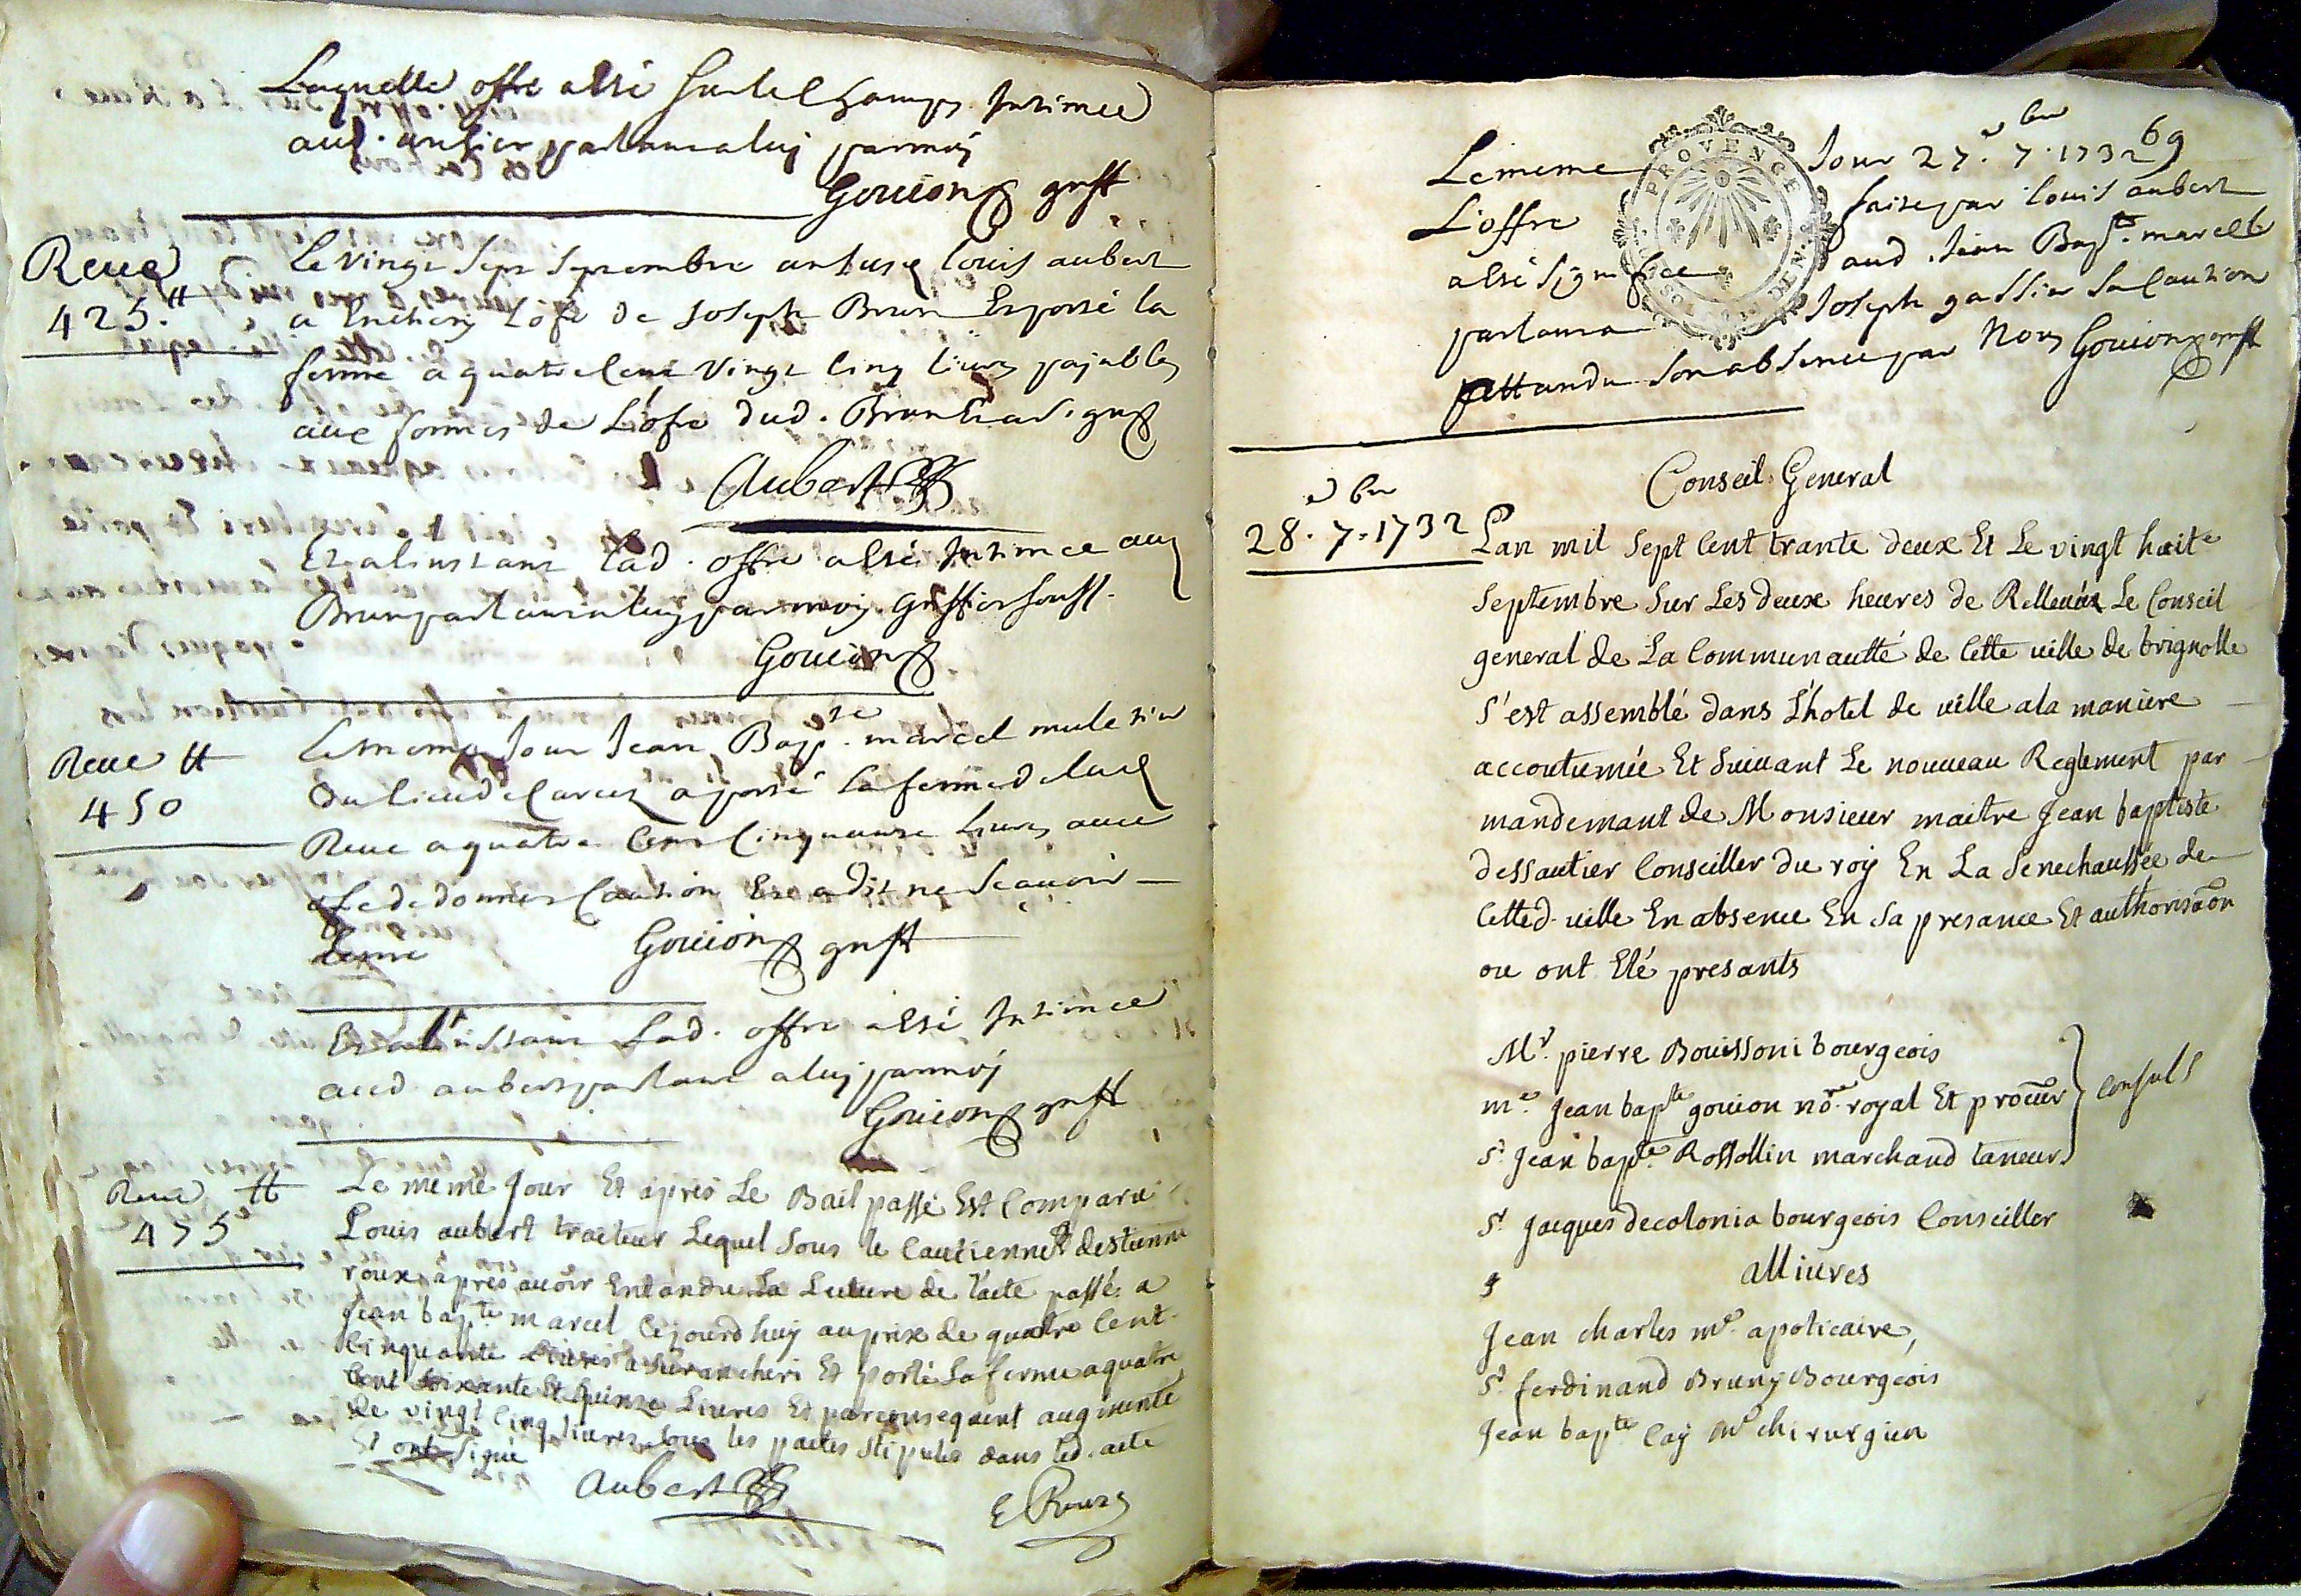 Laquelle offre a esté sur le champ Intimée
aud. antier parlant a luy par moy
Gouion greff.
Reue
425.tt
Le vingt sept septembre Louis aubert
a Encheri L'ofre de Joseph Brun Et porté la
ferme a quatre cent vingt cinq livres payables
aux formes de L'ofre dud. Brun Et a signé
Aubert
Et a l'instant lad. offre a esté Intimée aud
Brun parlant a luy par moy greffier souss.
Gouion
Reue tt
450
Le meme Jour Jean Bapte. marcel muletier
du lieu de carces a porté la ferme de lad
Reue a quatre cent cinquante livres avec
ofre de donner caution Et a dit ne scavoir
Gouion greff
Et a l'instant Lad. offre a esté Intimée
aud aubert parlant a luy par moy
Gouion greff
Reue tt
475
Le même Jour Et après Le Bail passé Est Comparu
Louis aubert traiteur Lequel Sous le Cautiennemt d'estienne
roux après avoir Entandu La Lecture de l'acte passé a
Jean bapte marcel cejourdhuy au prix de quatre Cent
Cinquante Livres a surancheri Et porté La ferme a quatre
Cent soixante Et quinze Livres Et parconsequent augmenté
de vingt cinq livres sous les pactes stipulés dans led. acte
Et ont signé
Aubert
E Roux
69
Le meme Jour 27. 7.bre 1732
L'offre faite par Louis aubert
a esté signifiée aud Jean Bapte. marcel
parlant a Joseph gassier sa Caution
attandu son absence par Nous Gouion greff
Conseil General
28. 7.bre 1732
L'an mil Sept Cent trante deux Et Le vingt huite
Septembre Sur Les deux heures de Rellevée Le Conseil
general de La Communautté de Cette ville de brignolle
s'est assemblé dans L'hotel de ville a la maniere
accoutumée Et Suivant Le nouveau Reglement par
mandemant de Monsieur maitre Jean baptiste
dessautier Conseiller du roy En La Senechaussée de
Cetted. ville En absence En Sa presance Et authorisaôn
ou ont Eté presants
Mr. pierre Bouissoni bourgeois
me. Jean bapte gouion nore. royal Et procur
Sr. Jean bapte. Rossollin marchand taneur
Consuls
Sr. Jacques decolonia bourgeois Conseiller
allivres
Jean charles me. apoticaire,
Sr. ferdinand Bruny Bourgeois
Jean bapte Cay me chirurgien
PROVENCE